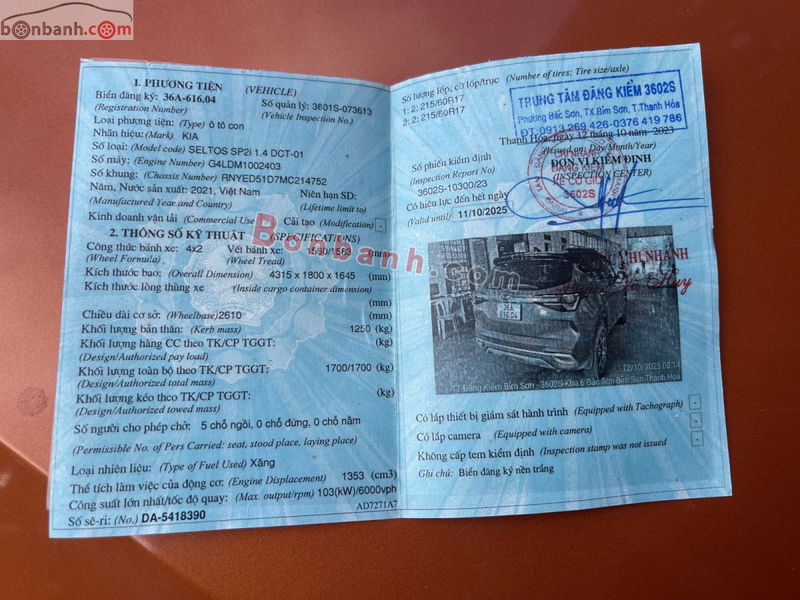 bonbanh.com
1. PHƯƠNG TIỆN (VEHICLE)
Biển đăng ký: 36A-616.04 Số quản lý: 3601S-073613
(Registration Number) (Vehicle Inspection No.)
Loại phương tiện: (Type) ô tô con
Nhãn hiệu: (Mark) KIA
Số loại: (Model code) SELTOS SP2i 1.4 DCT-01
Số máy: (Engine Number) G4LDM1002403
Số khung: (Chassis Number) RNYED51D7MC214752
Năm, Nước sản xuất: 2021, Việt Nam Niên hạn SD:
(Manufactured Year and Country) (Lifetime limit to)
Kinh doanh vận tải (Commercial Use) Cải tạo (Modification) -
2. THÔNG SỐ KỸ THUẬT (SPECIFICATIONS)
Công thức bánh xe: 4x2 Vết bánh xe: 1560/1583 (mm)
(Wheel Formula) (Wheel Tread)
Kích thước bao: (Overall Dimension) 4315 x 1800 x 1645 (mm)
Kích thước lòng thùng xe (Inside cargo container dimension)
(mm)
Chiều dài cơ sở: (Wheelbase) 2610 (mm)
Khối lượng bản thân: (Kerb mass) 1250 (kg)
Khối lượng hàng CC theo TK/CP TGGT: (kg)
(Design/Authorized pay load)
Khối lượng toàn bộ theo TK/CP TGGT: 1700/1700 (kg)
(Design/Authorized total mass)
Khối lượng kéo theo TK/CP TGGT: (kg)
(Design/Authorized towed mass)
Số người cho phép chở: 5 chỗ ngồi, 0 chỗ đứng, 0 chỗ nằm
(Permissible No. of Pers Carried: seat, stood place, laying place)
Loại nhiên liệu: (Type of Fuel Used) Xăng
Thể tích làm việc của động cơ: (Engine Displacement) 1353 (cm3)
Công suất lớn nhất/tốc độ quay: (Max. output/rpm) 103(kW)/6000vph
Số sê-ri: (No.) DA-5418390 AD7271A7
Số lượng lốp, cỡ lốp/trục (Number of tires; Tire size/axle)
1: 2; 215/60R17
2: 2; 215/60R17
TRUNG TÂM ĐĂNG KIỂM 3602S
Phường Bắc Sơn, TX.Bỉm Sơn, T.Thanh Hóa
ĐT: 0913 269 426-0376 419 786
Thanh Hóa, ngày 12 tháng 10 năm 2023
(Issued on: Day/Month/Year)
Số phiếu kiểm định ĐƠN VỊ KIỂM ĐỊNH
(Inspection Report No) (INSPECTION CENTER)
3602S-10300/23
Có hiệu lực đến hết ngày
(Valid until) 11/10/2025
CHI NHÁNH
ĐĂNG KIỂM
XE CƠ GIỚI
3602S
Bonbanh.com
CHI NHÁNH
Huy
36A
616.04
12/10/2023 08:14
TT Đăng Kiểm Bỉm Sơn - 3602S-Khu 6 Bắc Sơn Bỉm Sơn Thanh Hoá
Có lắp thiết bị giám sát hành trình (Equipped with Tachograph) -
Có lắp camera (Equipped with camera) -
Không cấp tem kiểm định (Inspection stamp was not issued) -
Ghi chú: Biển đăng ký nền trắng